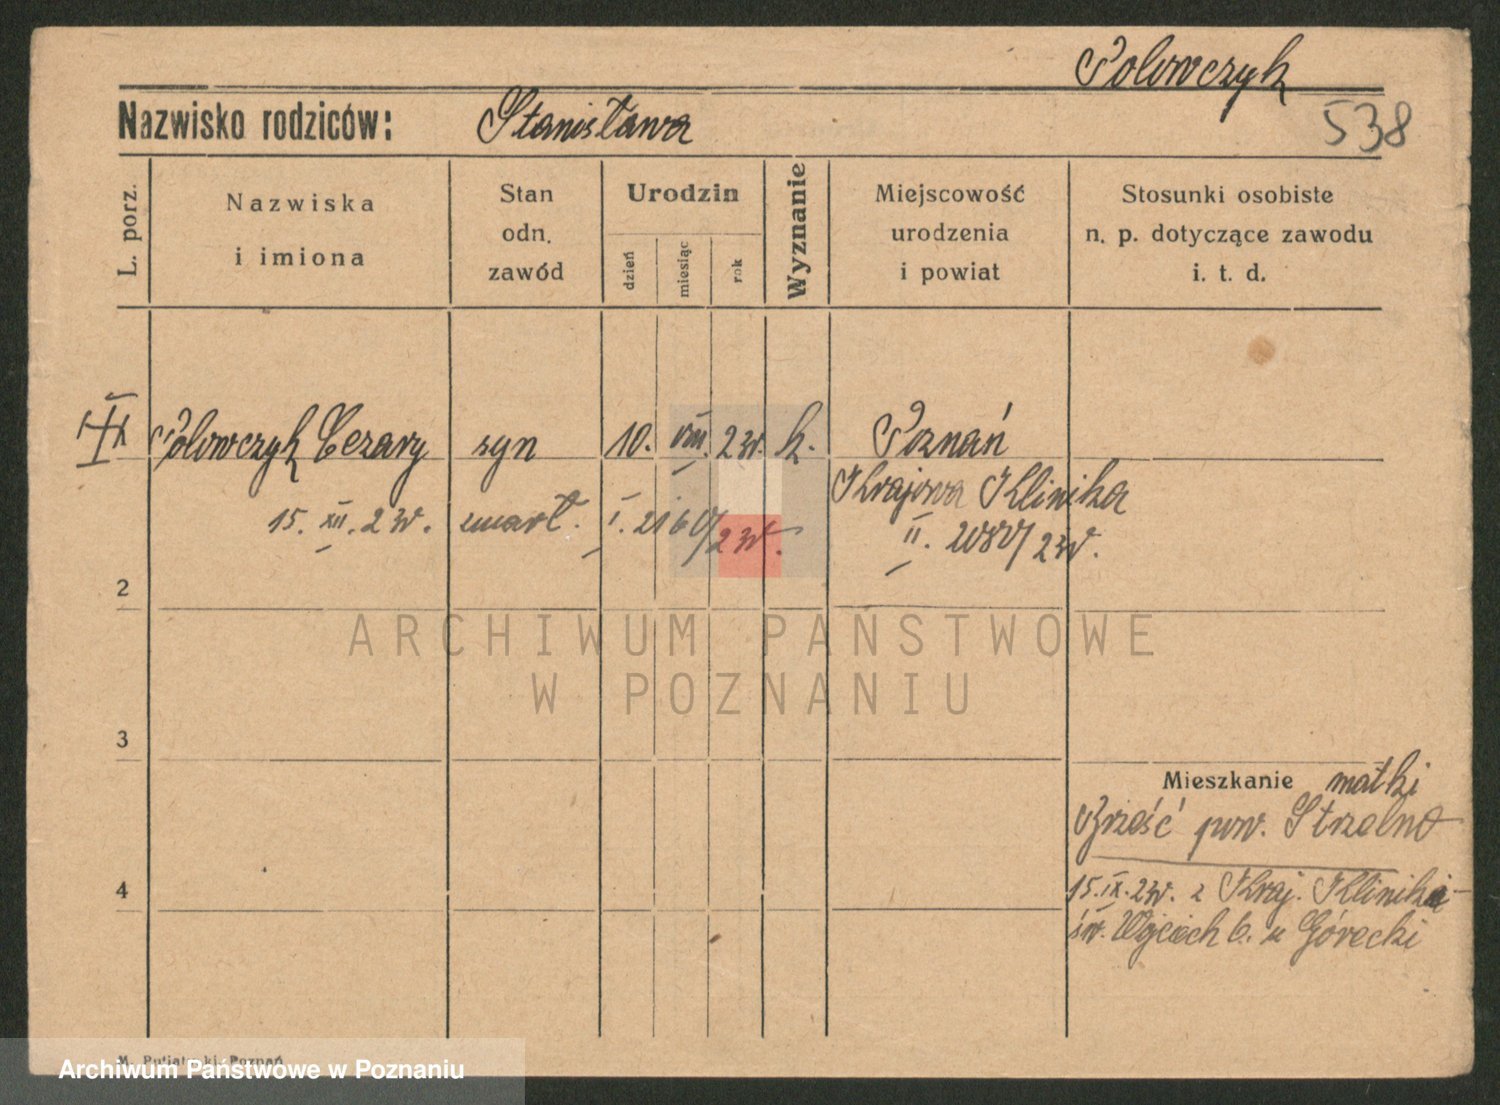 Polowczyk
Nazwisko rodziców: Stanisława
538
L. porz.
Nazwiska
i imiona
Stan
odn.
zawód
Urodzin
dzień
miesiąc
rok
Wyznanie
Miejscowość
urodzenia
i powiat
Stosunki osobiste
n. p. dotyczące zawodu
i. t. d.
Polowczyk Cezary syn 10. VIII. 23r. k. Poznań
Krajowa Klinika
15. XII. 23r. zmarł. I. 2160/23r.
II. 2080/23r.
2
ARCHIWUM PAŃSTWOWE
W POZNANIU
3
Mieszkanie matki
Brześć pow. Strzelno
4
15.IX.23r. z Kraj. Klinika
św. Wojciech 6. u Górecki
Poznań
Archiwum Państwowe w Poznaniu